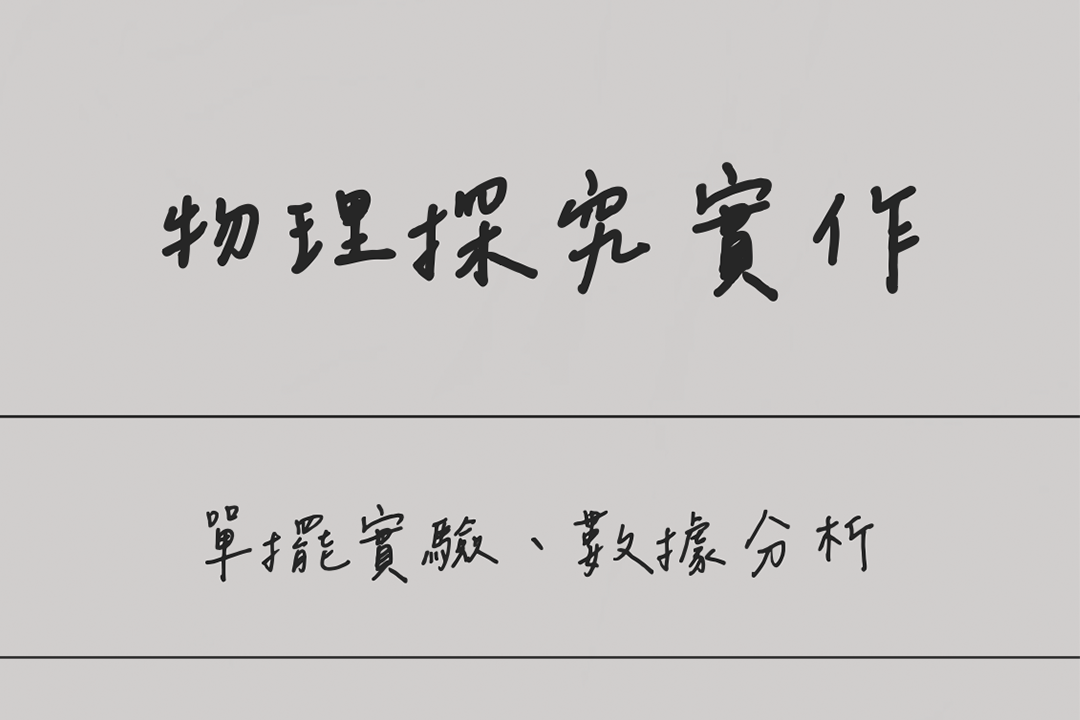 物理探究實作
單擺實驗、數據分析